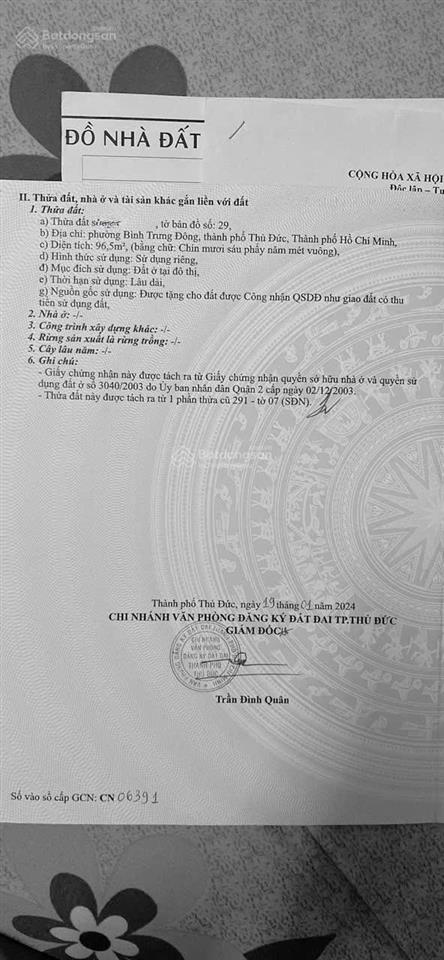 Batdongsan
ĐỒ NHÀ ĐẤT
CỘNG HÒA XÃ HỘI
Độc lập – Tự
II. Thửa đất, nhà ở và tài sản khác gắn liền với đất
1. Thửa đất:
a) Thửa đất số , tờ bản đồ số: 29,
b) Địa chỉ: phường Bình Trưng Đông, thành phố Thủ Đức, Thành phố Hồ Chí Minh,
c) Diện tích: 96,5m², (bằng chữ: Chín mươi sáu phẩy năm mét vuông),
d) Hình thức sử dụng: Sử dụng riêng,
đ) Mục đích sử dụng: Đất ở tại đô thị,
e) Thời hạn sử dụng: Lâu dài,
g) Nguồn gốc sử dụng: Được tặng cho đất được Công nhận QSDĐ như giao đất có thu
tiền sử dụng đất,
2. Nhà ở: -/-
3. Công trình xây dựng khác: -/-
4. Rừng sản xuất là rừng trồng: -/-
5. Cây lâu năm: -/-
6. Ghi chú:
- Giấy chứng nhận này được tách ra từ Giấy chứng nhận quyền sở hữu nhà ở và quyền sử
dụng đất ở số 3040/2003 do Ủy ban nhân dân Quận 2 cấp ngày 02/12/2003.
- Thửa đất này được tách ra từ 1 phần thửa cũ 291 - tờ 07 (SĐN).
Batdongsan
Thành phố Thủ Đức, ngày 19 tháng 01 năm 2024
CHI NHÁNH VĂN PHÒNG ĐĂNG KÝ ĐẤT ĐAI TP.THỦ ĐỨC
GIÁM ĐỐC
CHI NHÁNH
VĂN PHÒNG
ĐĂNG KÝ ĐẤT ĐAI
THÀNH PHỐ
THỦ ĐỨC
Trần Đình Quân
Số vào sổ cấp GCN: CN 06391
Batdongsan